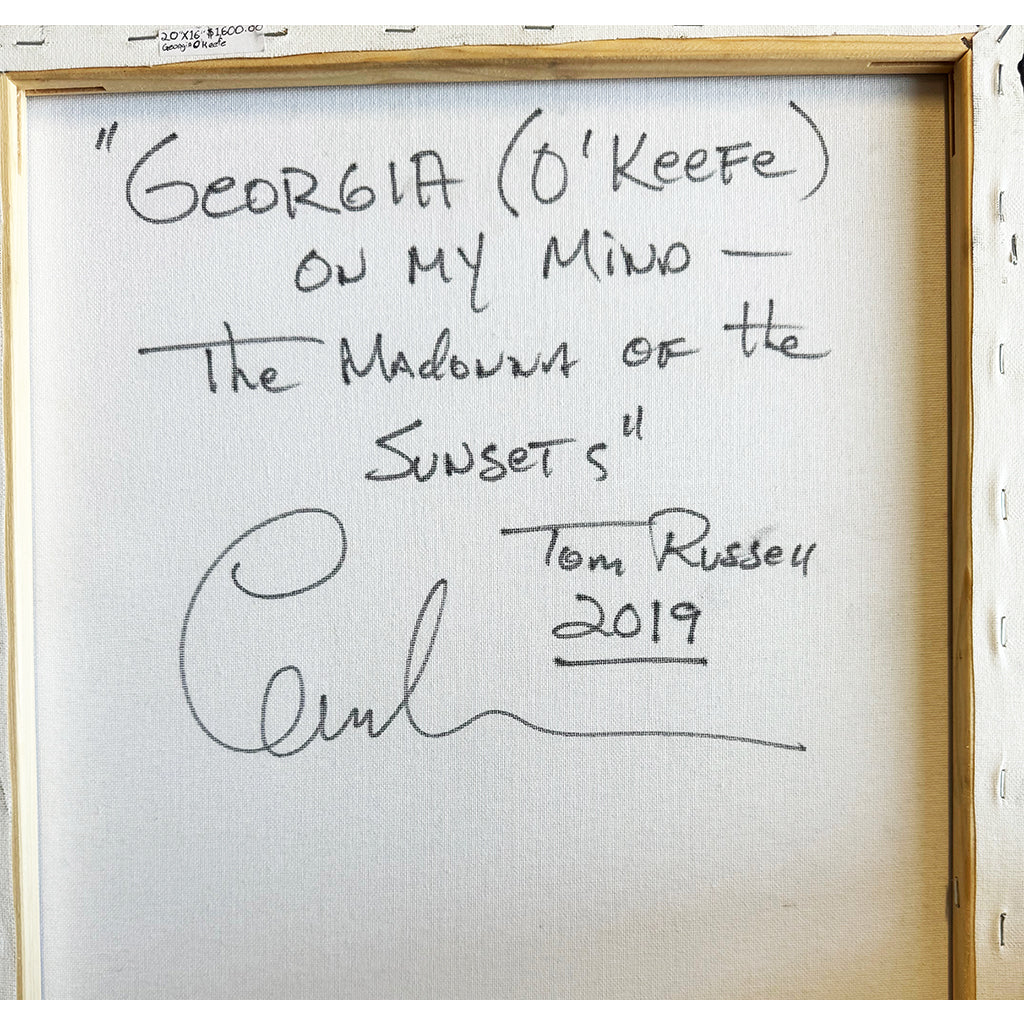 20"X16" $1,600.00
Georgia O'Keefe
"GEORGIA (O'KeeFe)
ON MY MiND —
The MADONNA OF the
SUNSETS"
Tom Russell
2019